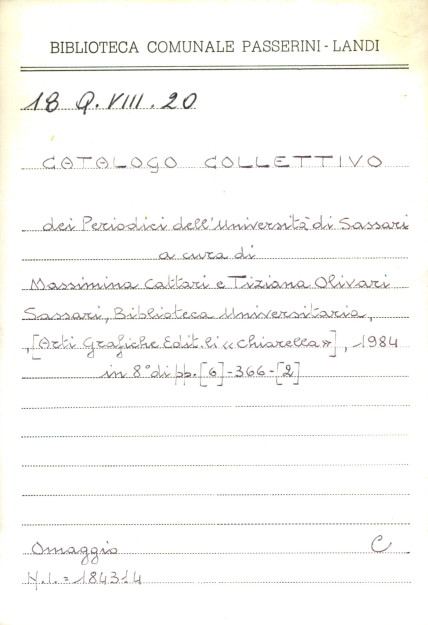 BIBLIOTECA COMUNALE PASSERINI - LANDI
18 Q. VIII. 20
CATALOGO COLLETTIVO
dei Periodici dell'Università di Sassari
a cura di
Massimina Cattari e Tiziana Olivari
Sassari, Biblioteca Universitaria,
,[Arti Grafiche Edit.li «Chiarella»], 1984
in 8° di pp. [6]-366-[2]
Omaggio C
N.I. = 184314